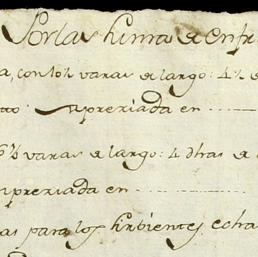 Por las
a, con 10½ varas de largo: 4½ de
apreziada en
6½ varas de largo: 4 dhas de
apreziada en
as para los sirbientes echa